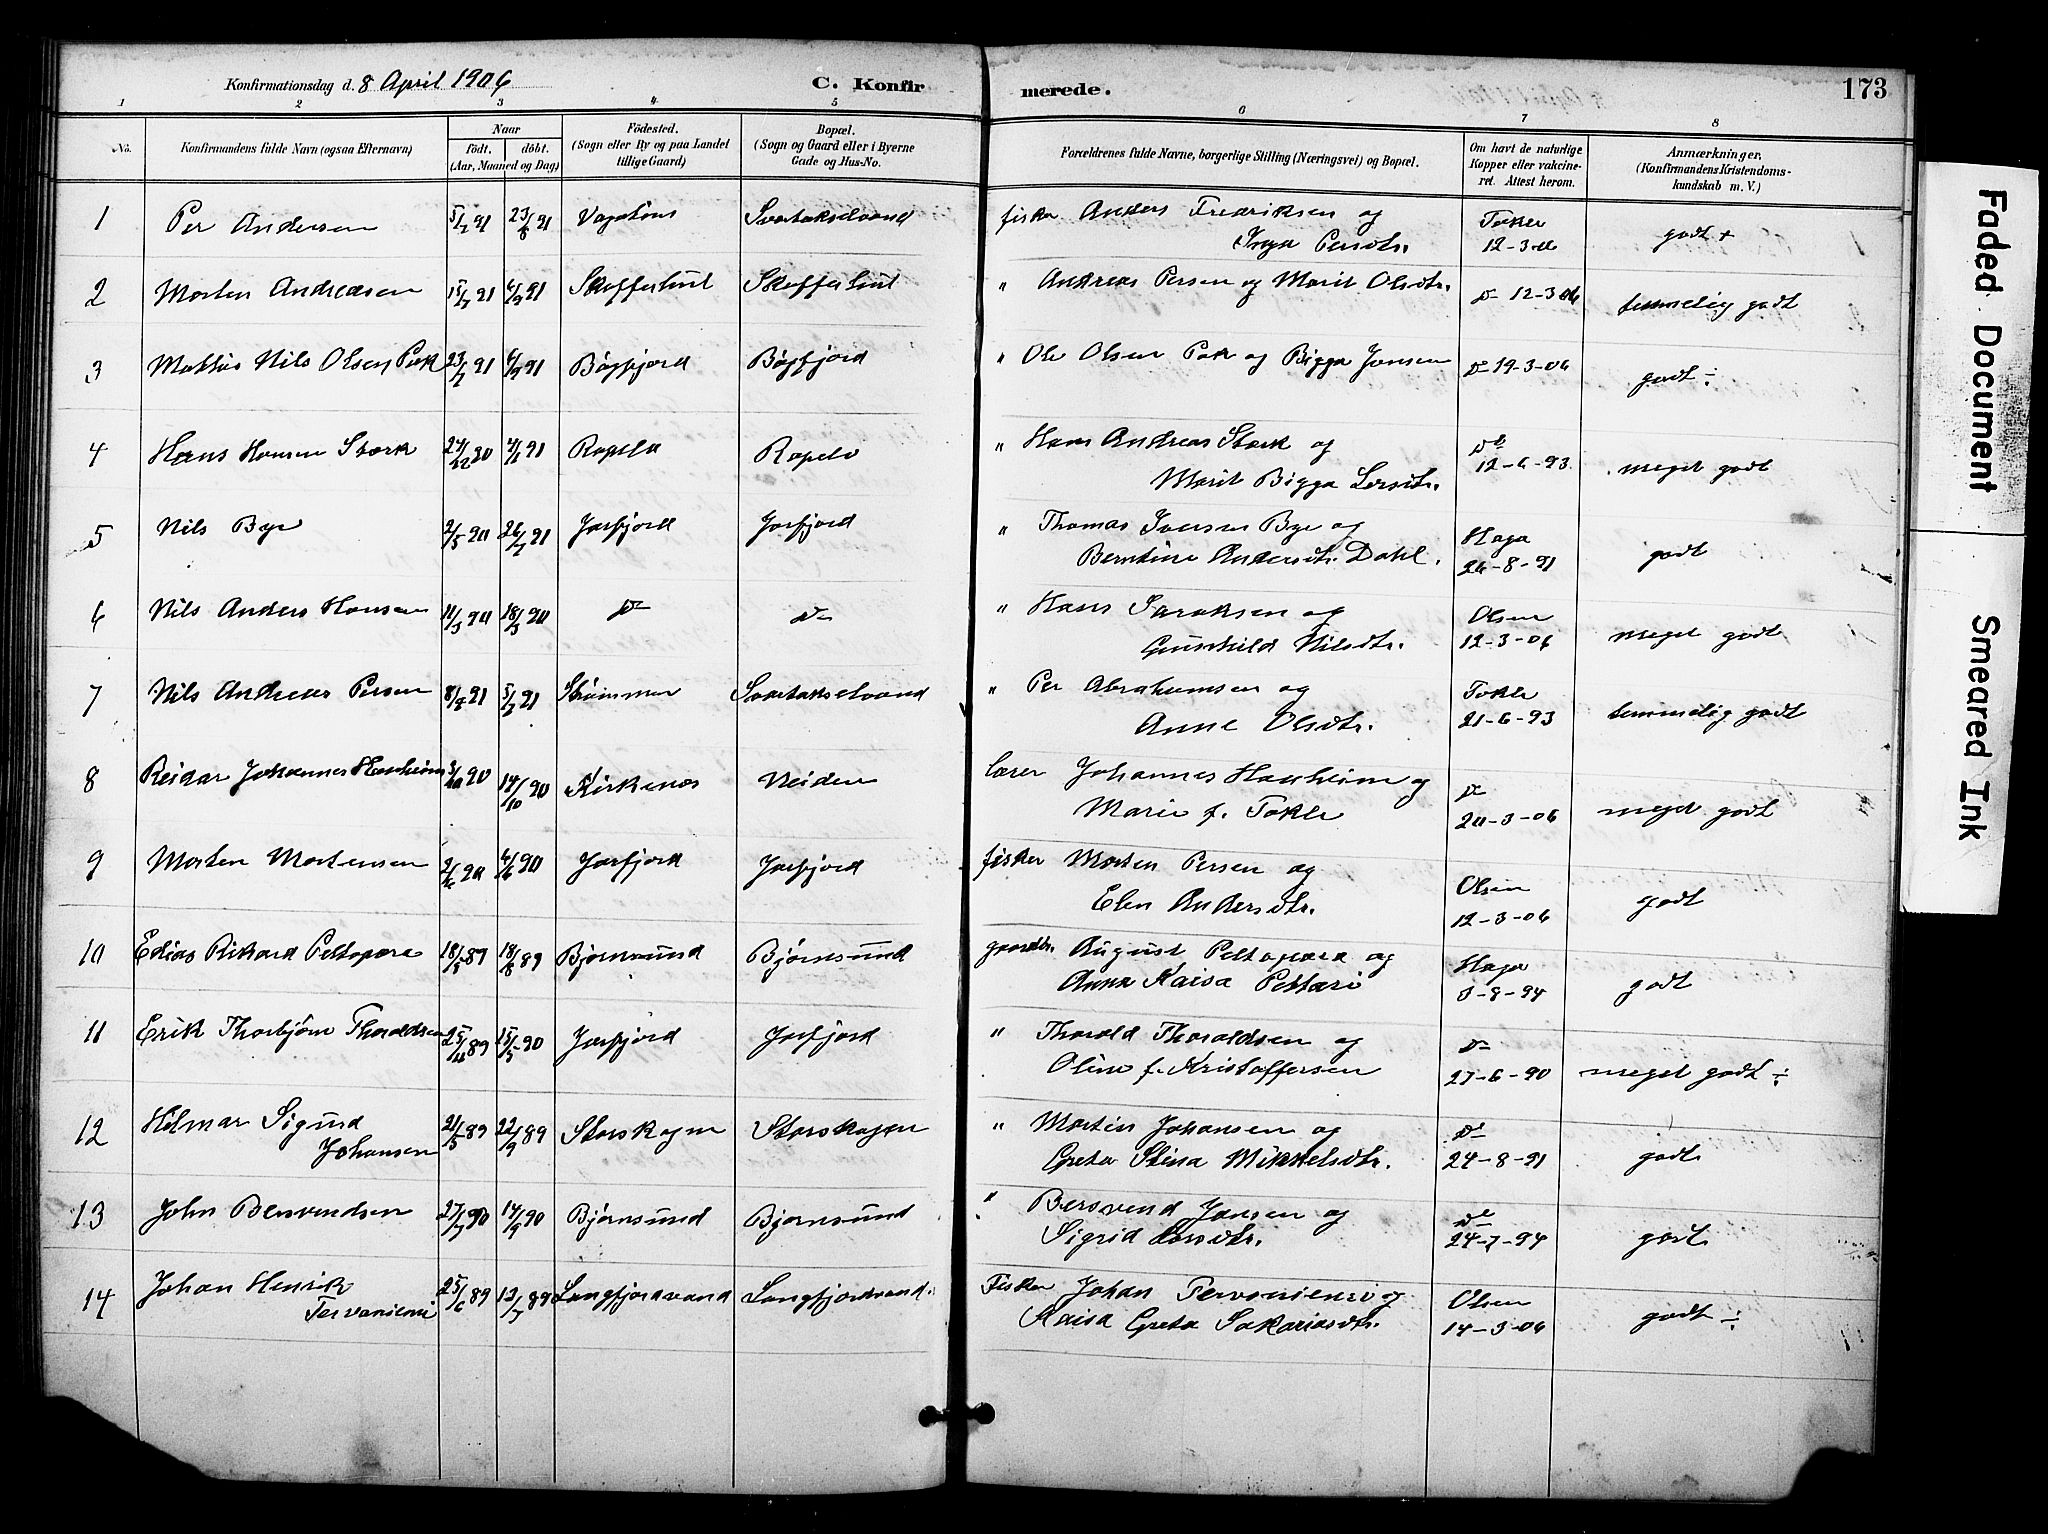 Konfirmationsdag d. 8 April 1906
C. Konfirmerede.
173
1 2 3 4 5 6 7 8
No.
Konfirmandens fulde Navn (ogsaa Efternavn)
Naar
født. døbt.
(Aar, Maaned og Dag)
Födested.
(Sogn eller By og paa Landet
tillige Gaard)
Bopæl.
(Sogn og Gaard eller i Byerne
Gade og Hus-No.
Forældrenes fulde Navne, borgerlige Stilling (Næringsvei) og Bopæl.
Om havt de naturlige
Kopper eller vakcine-
ret. Attest herom.
Anmærkninger.
(Konfirmandens Kristendoms-
kundskab m. V.)
1 Per Andersen 5/7 91 23/8 91 Svartakselvand fisker Anders Fredriksen og
Inga Persdtr. Tokle
12-3-06 godt +
2 Morten Andreasen 15/7 91 6/9 91 Skofferhul Skofferhul " Andreas Persen og Marit Olsdtr. D 12-3-06 temmelig godt
3 Mathis Nils Olsen 23/7 91 6/9 91 Bøgfjord Bøgfjord " Ole Olsen og Bigga Jonsen D 19-3-06 godt ÷
4 Hans Hansen Stark 24/12 90 91 " Hans Andreas Stark og
Marit Bigga Larsdtr. Do
12-6-93. meget godt
5 Nils Bye 2/5 90 26/7 91 Jarfjord Jarfjord " Thomas Iversen Bye og
Berntine Andersdtr. Dahl. Haga
26-8-91 godt
6 Nils Anders Hansen 11/3 90 18/3 90 D D " Hans Isaksen og
Gunhild Nilsdtr. Olsen
12-3-06 meget godt
7 Nils Andreas Persen 91 91 Strømmen Svartakselvand " Per Abrahamsen og
Anne Olsdtr. Tokle
21-6-93 temmelig godt
8 Reidar Johannes Hauheim 90 14/10 90 Kirkenæs Neiden lærer Johannes Hauheim og
Marie f. Tokle D
20-3-06 meget godt
9 Morten Mortensen 2/6 90 6/6 90 Jarfjord Jarfjord fisker Morten Persen og
Elen Andersdtr. Olsen
12-3-06 godt
10 Edias Rikard Peltopera 18/8 89 89 Bjørnsund Bjørnsund gaardbr. August Peltopera og
Anna Kaisa Pettari Haga
3-8-94 godt
11 Erik Thorbjørn Thoraldsen 25/11 89 15/5 90 Jarfjord Jarfjord " Thorald Thoraldsen og
Oline f. Kristoffersen D
27-6-90 meget godt ÷
12 Hilmar Sigurd
Johansen 21/5 89 22/9 89 Storskogen Storskogen " Martin Johansen og
Greta Stina Mikkelsdtr. Do
24-8-91 godt
13 John Bersvendsen 27/7 90 14/9 90 Bjørnsund Bjørnsund " Bersvend Jansen og
Sigrid Larsdtr. Do
24-7-94 godt
14 Johan Henrik
Tervaniemi 25/6 89 13/7 89 Langfjordvand Langfjordvand. Fisker Johan Tervaniemi og
Kaisa Greta Sakariasdtr. Olsen
14-3-06 godt ÷
Faded Document
Smeared Ink